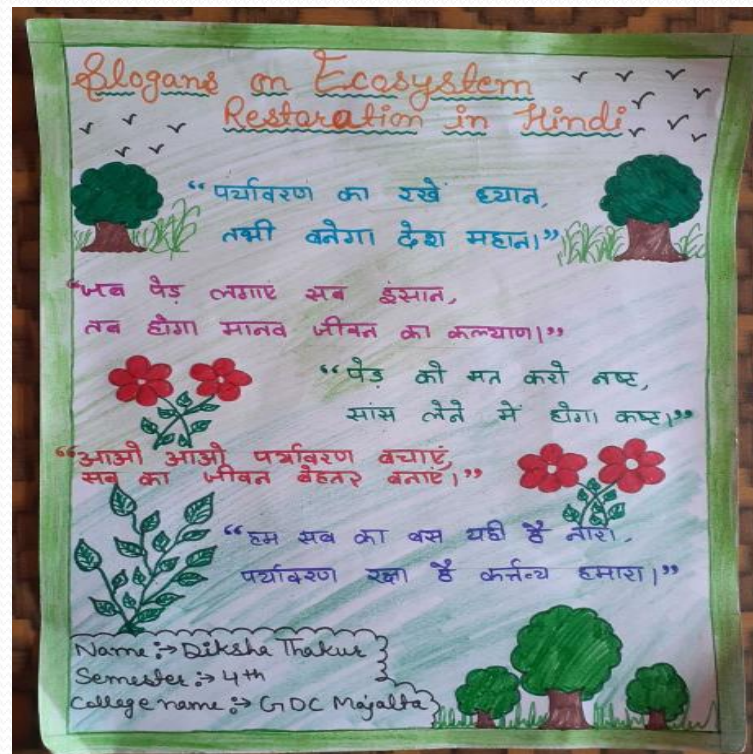 Slogans on Ecosystem
Restoration in Hindi
“पर्यावरण का रखें ध्यान,
तभी बनेगा देश महान।”
“जब पेड़ लगाएं सब इंसान,
तब होगा मानव जीवन का कल्याण।”
“पेड़ को मत करो नष्ट,
सांस लेने में होगा कष्ट।”
“आओ आओ पर्यावरण बचाएं,
सब का जीवन बेहतर बनाएं।”
“हम सब का बस यही है नारा,
पर्यावरण रक्षा है कर्त्तव्य हमारा।”
Name :→ Diksha Thakur
Semester :→ 4th
College name :→ GDC Majalta